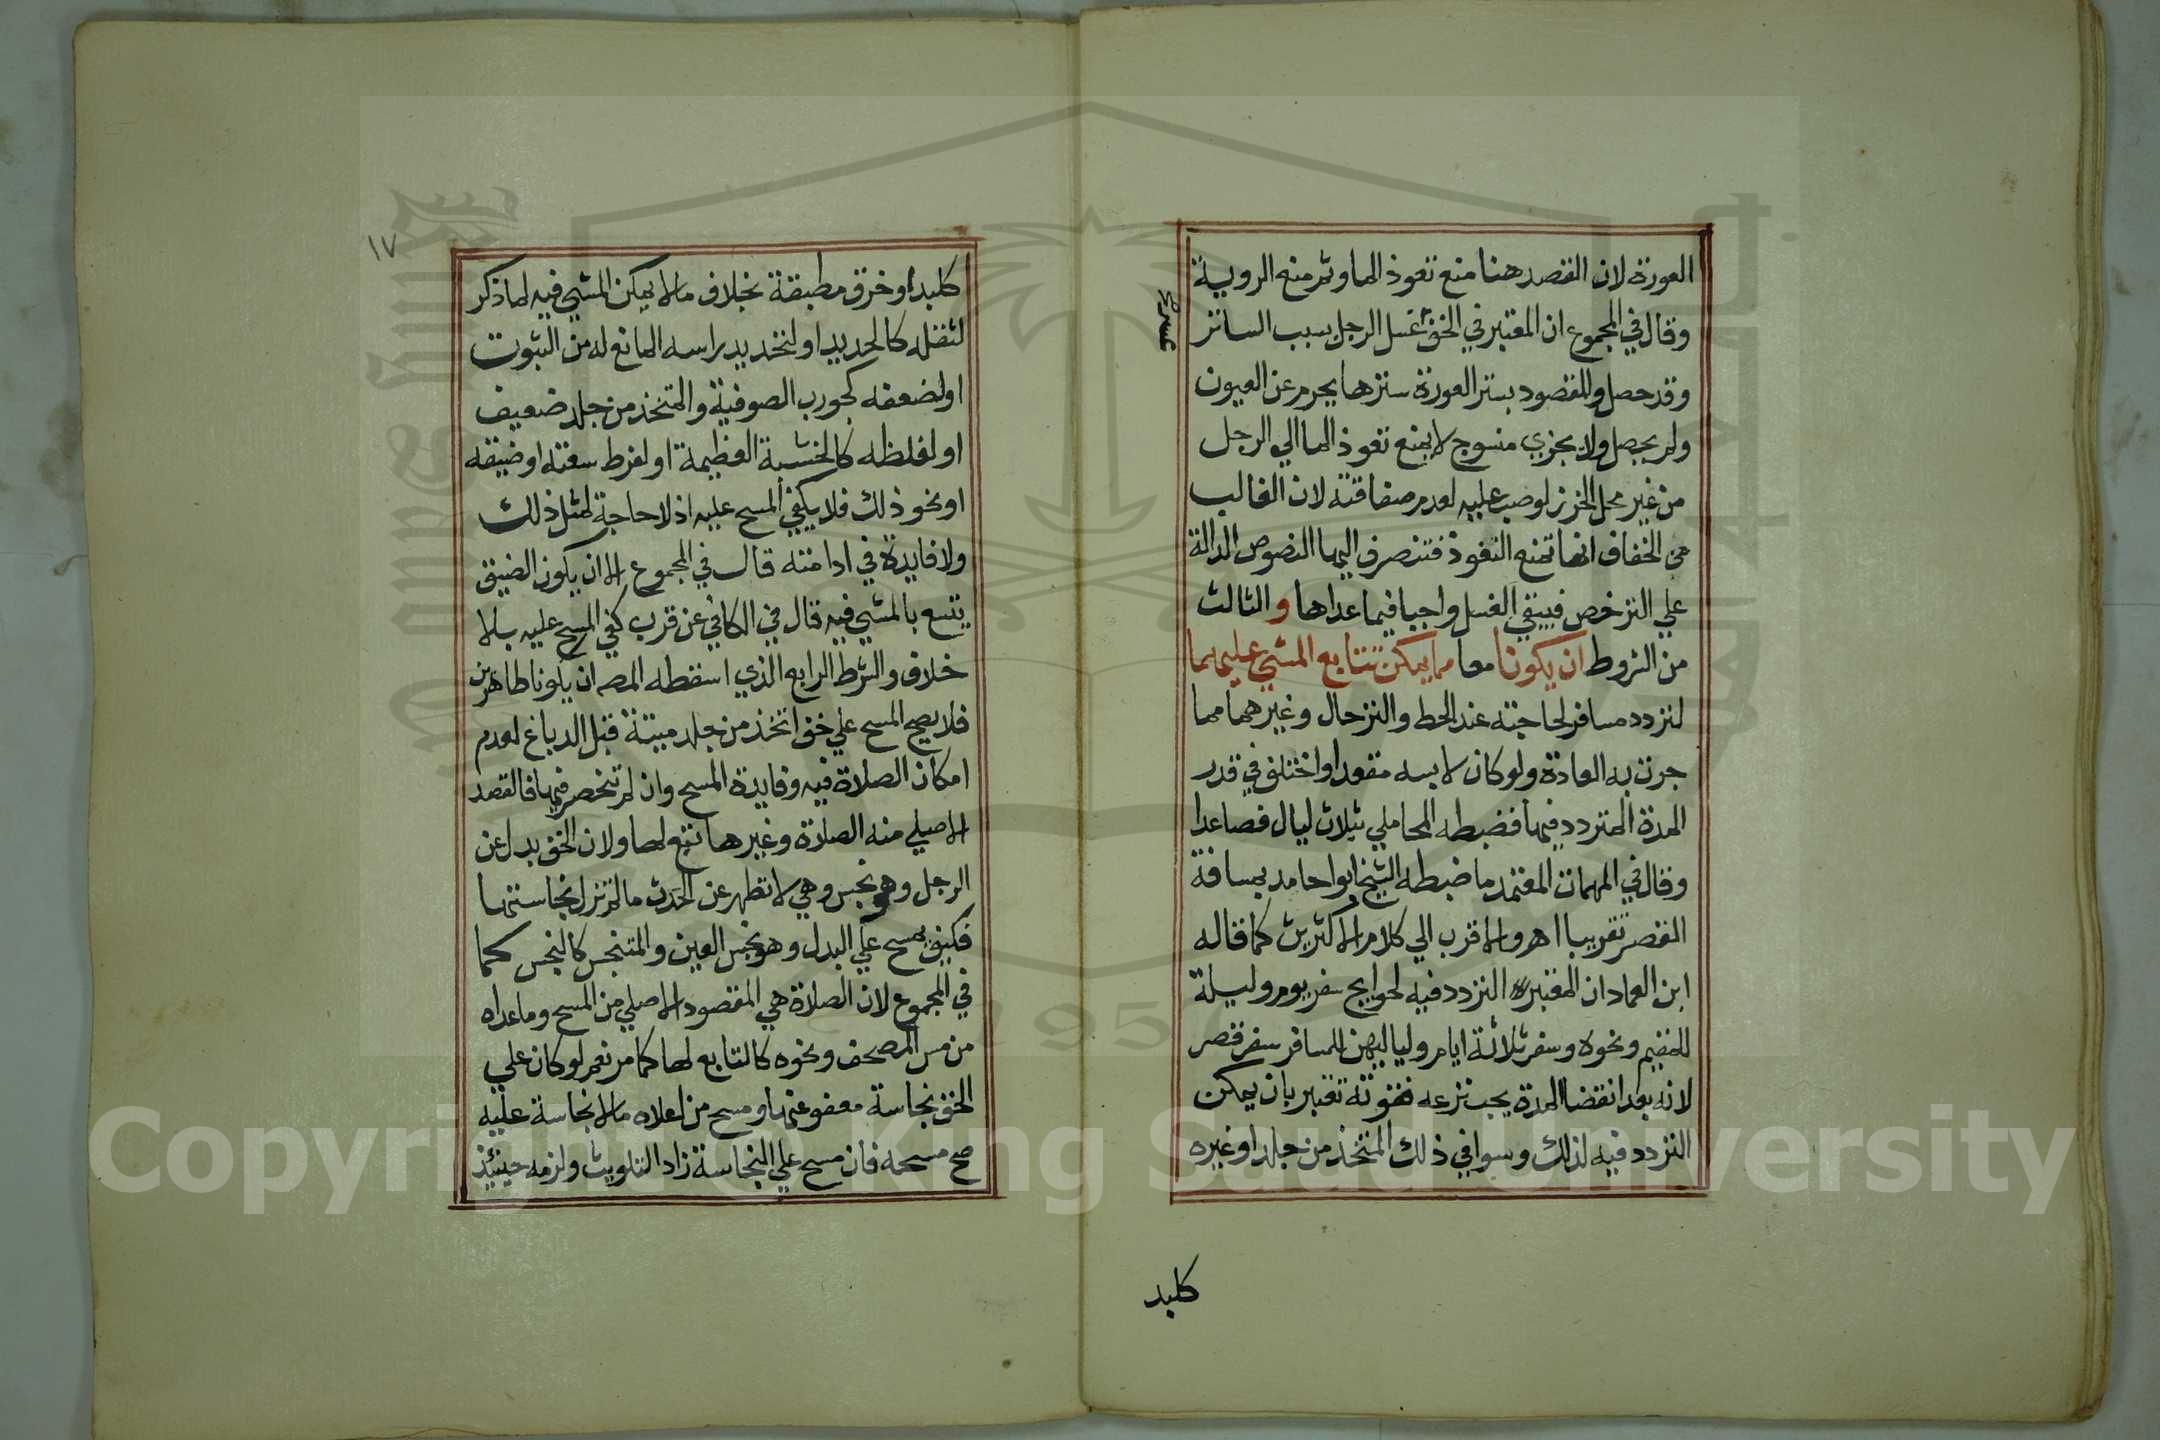 العورة لان القصد هنا منع نفوذ الماوثم منع الروية
وقال في المجموع ان المعتبر في الخف عسر غسل الرجل بسبب الساتر
وقد حصل والمقصود بستر العورة سترها بجرم عن العيون
ولم يحصل ولا يجزي منسوج لا يمنع نفوذ الما الي الرجل
من غير محل الخرز لو صب عليه لعدم صفاقته لان الغالب
من الخفاف انها تمنع النفوذ فتنصرف اليها النصوص الدالة
علي الترخص فيبقي الغسل واجبا فيما عداها و الثالث
من الشروط ان يكونا معا مما يمكن تتابع المشي عليهما
لتردد مسافر لحاجته عند الحط والترحال وغيرهما مما
جرت به العادة ولو كان لابسه مقعدا واختلف في قدر
المدة المتردد فيها فضبطه المحاملي بثلاث ليال فصاعدا
وقال في المهمات المعتمد ما ضبطه الشيخ ابوا حامد بمسافة
القصر تقريبا اهـ والاقرب الي كلام الاكثرين كما قاله
ابن العماد ان المعتبر التردد فيه لحوايج سفر يوم وليلة
للمقيم ونحوه وسفر ثلاثة ايام ولياليهن للمسافر سفر قصر
لانه بعد انقضا المدة يجب نزعه فقوته تعتبر بان يمكن
التردد فيه لذلك وسوا في ذلك المتخذ من جلد او غيره
كلبد
١٧
كلبد او خرق مطبقة بخلاف ما لا يمكن المشي فيه لما ذكر
لثقله كالحديد او لتحديد راسه المانع له من الثبوت
او لضعفه كجورب الصوفية والمتخذ من جلد ضعيف
او لغلظه كالخشبة العظيمة او لفرط سعته او ضيقه
او نحو ذلك فلا يكفي المسح عليه اذ لا حاجة لمثل ذلك
ولا فايدة في ادامته قال في المجموع الا ان يكون الضيق
يتسع بالمشي فيه قال في الكافي عن قرب كفي المسح عليه بلا
خلاف والشرط الرابع الذي اسقطه المصـ ان يكونا طاهرين
فلا يصح المسح علي خف اتخذ من جلد ميتة قبل الدباغ لعدم
امكان الصلاة فيه وفايدة المسح وان لم تنحصر فيها فالقصد
الاصلي منه الصلاة وغيرها تبع لها ولان الخف بدل عن
الرجل وهو نجس وهي لا تطهر عن الحدث ما لم تزل نجاستها
فكيف يمسح علي البدل وهو نجس العين والمتنجس كالنجس كما
في المجموع لان الصلاة هي المقصود الاصلي من المسح وما عداه
من مس المصحف ونحوه كالتابع لها كما مر نعم لو كان علي
الخف نجاسة معفو عنها و مسح من اعلاه ما لا نجاسة عليه
صح مسحه فان مسح علي النجاسة زاد التلويث ولزمه حينئذ